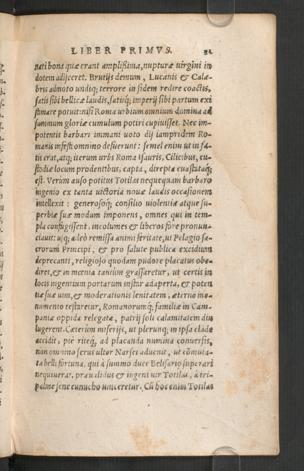 LIBER PRIMVS.
nati bona quæ erant amplissima, nupturæ virgini in
dotem adijceret. Brutijs demum, Lucanis & Cala-
bris admoto undiq; terrore in fidem redire coactis,
satis sibi bellicæ laudis, satisq; imperij sibi partum exi
stimare potuit: nisi Roma urbium omnium domina ad
summum gloriæ cumulum potiri cupiisset. Nec im-
potentis barbari immani uoto diu iampridem Ro-
manis infesti omnino defuerunt: semel enim ut in fa-
tis erat, atq; iterum urbs Roma Isauris, Cilicibus,
todiæ locum prodentibus, capta, direpta
est. Verùm auso potitus Totilas nequequam barbaro
ingenio ex tanta uictoria nouæ laudis occasionem
intellexit: generosoq; consilio uiolentiæ atque su-
perbiæ suæ modum imponens, omnes qui in tem-
pla confugissent, incolumes & liberos fore pronun-
ciauit: usq; adeò remissa animi feritate, ut Pelagio sa-
crorum Principi, & pro salute publica excidium
deprecanti, religioso quodam pudore placatus obe-
diret, & in mœnia tantùm grassaretur, ut certis in
locis ingentium portarum instar adaperta, & poten
tiæ suæ uim, & moderationis lenitatem, æterno mo-
numento testaretur, Romanorumq; familiæ in Cam-
paniæ oppida relegatæ, patrij soli calamitatem diu
lugerent. Cæterùm miserijs, ut plerunq; in ipsa clade
accidit, piè riteq; ad placanda numina conuersis,
non omnino serus ultor Narses aduenit, ut
ta belli fortuna, qui à summo duce Belisario superari
nequiuerat, præualidus & ingens uir Totilas, à tri-
semine sene eunucho uinceretur. Cũ hoc enim Totilas